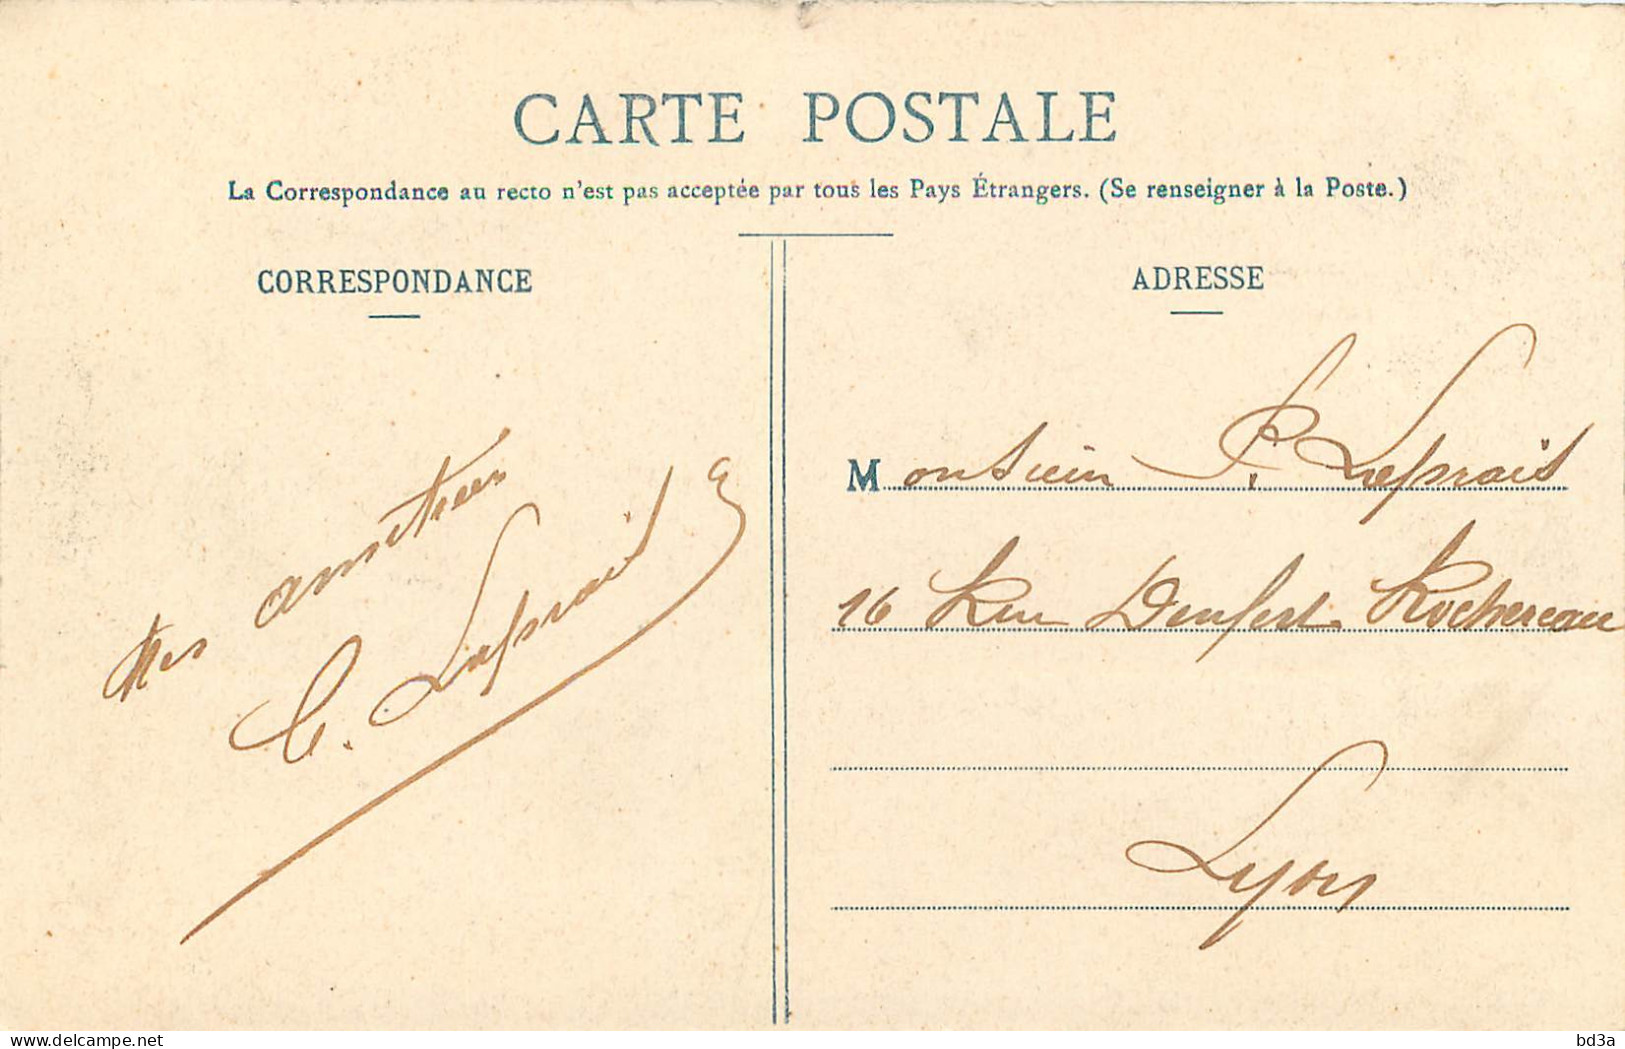 CARTE POSTALE
La Correspondance au recto n'est pas acceptée par tous les Pays Étrangers. (Se renseigner à la Poste.)
CORRESPONDANCE
Mes amitiés
C. Leprais
ADRESSE
Monsieur P. Leprais
16 Rue Denfert Rochereau
Lyon
delcampe.net
bd3a